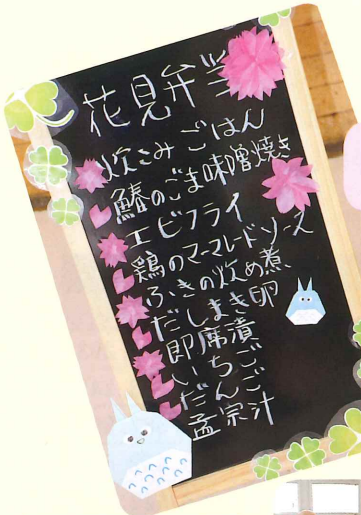 花見弁当
炊こみごはん
鰆のごま味噌焼き
エビフライ
鶏のママレードソース
ふきの炒め煮
だしまき卵
即席漬
いちご
だんご
孟宗汁